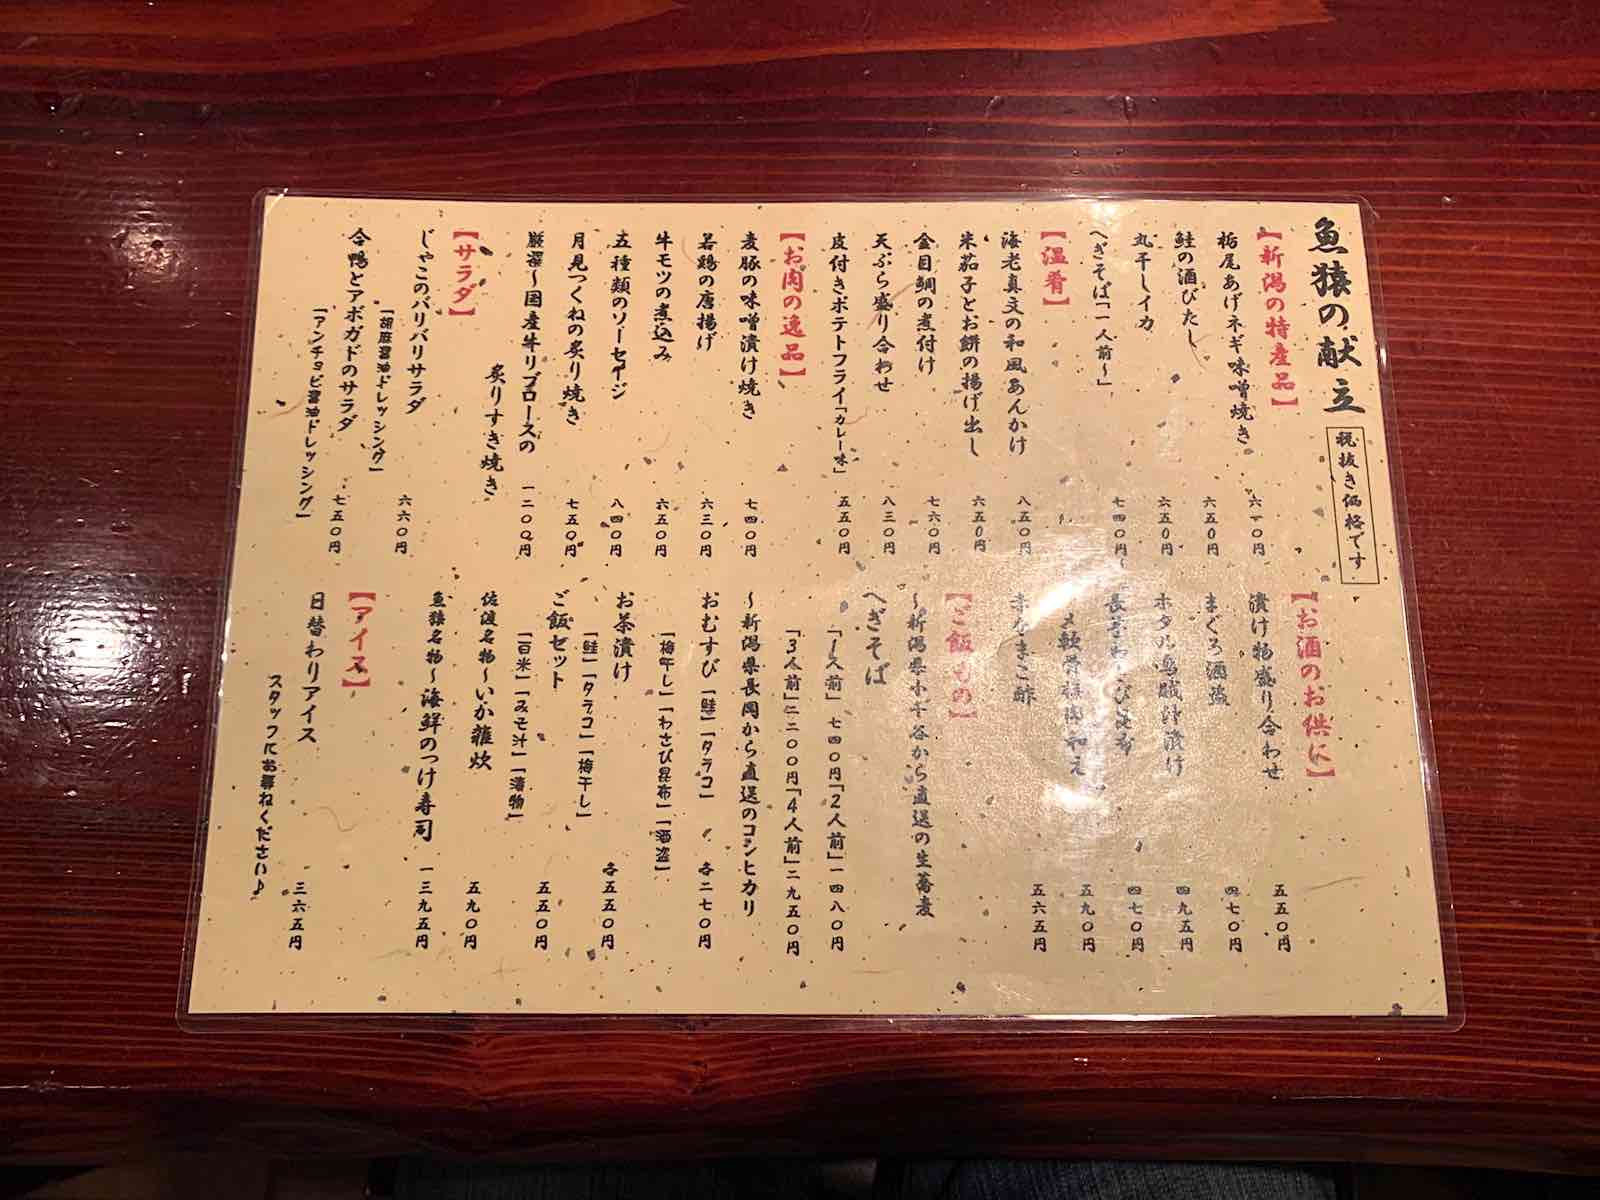 魚猿の献立
税抜き価格です
【新潟の特産品】
栃尾あげネギ味噌焼き 六一〇円
鮭の酒びたし 六五〇円
丸干しイカ 六五〇円
へぎそば「一人前~」 七四〇円~
【温肴】
海老真丈の和風あんかけ 八五〇円
米茄子とお餅の揚げ出し 六五〇円
金目鯛の煮付け 七六〇円
天ぷら盛り合わせ 八三〇円
皮付きポテトフライ「カレー味」 五五〇円
【お肉の逸品】
麦豚の味噌漬け焼き 七四〇円
若鶏の唐揚げ 六三〇円
牛モツの煮込み 六五〇円
五種類のソーセージ 八四〇円
月見つくねの炙り焼き 七五〇円
厳選~国産牛リブロースの
炙りすき焼き 一二〇〇円
【サラダ】
じゃこのパリパリサラダ 六六〇円
「胡麻醤油ドレッシング」
合鴨とアボガドのサラダ 七五〇円
「アンチョビ醤油ドレッシング」
【お酒のお供に】
漬け物盛り合わせ 五五〇円
まぐろ酒盗 四七〇円
ホタル烏賊沖漬け 四九五円
長芋わさび昆布 四七〇円
軟骨梅肉和え 五九〇円
赤なまこ酢 五六五円
【ご飯もの】
~新潟県小千谷から直送の生蕎麦
へぎそば
「1人前」七四〇円「2人前」一四八〇円
「3人前」二二〇〇円「4人前」二九五〇円
~新潟県長岡から直送のコシヒカリ
おむすび「鮭」「タラコ」 各二七〇円
「梅干し」「わさび昆布」「酒盗」
お茶漬け 各五五〇円
「鮭」「タラコ」「梅干し」
ご飯セット 五五〇円
「白米」「みそ汁」「漬物」
佐渡名物~いか雑炊 五九〇円
魚猿名物~海鮮のっけ寿司 一三九五円
【アイス】
日替わりアイス 三六五円
スタッフにお尋ねください♪